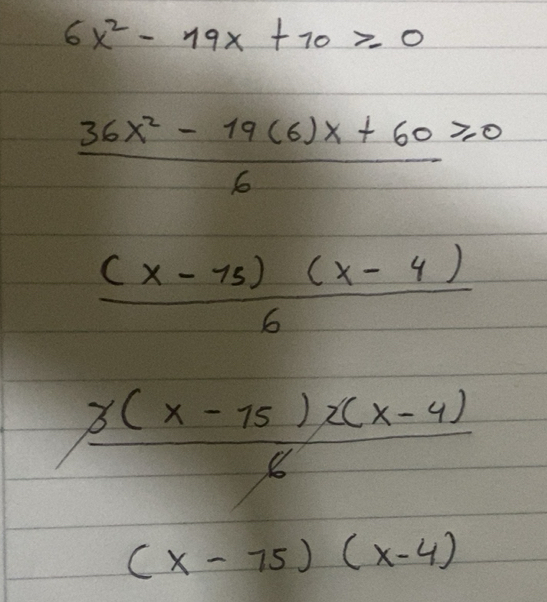 6x² - 19x + 10 ≥ 0
36x² - 19(6)x + 60 ≥ 0
6
(x - 15) (x - 4)
6
3(x - 15) 2(x - 4)
6
(x - 15) (x - 4)